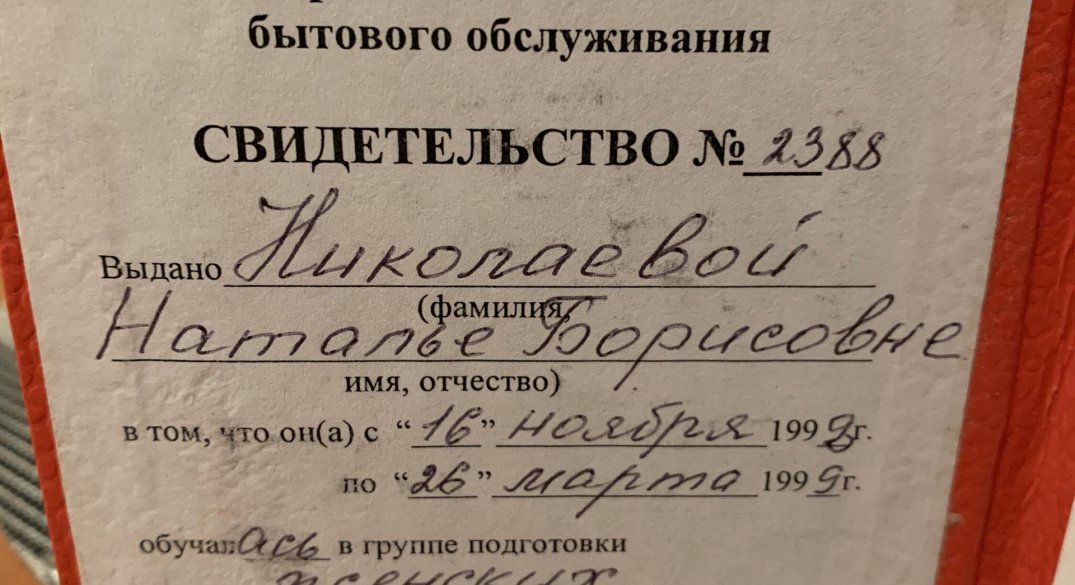 бытового обслуживания
СВИДЕТЕЛЬСТВО № 2388
Выдано Николаевой
(фамилия,
Наталье Борисовне
имя, отчество)
в том, что он(а) с “16” ноября 1998г.
по “26” марта 1999г.
обучалась в группе подготовки
женских